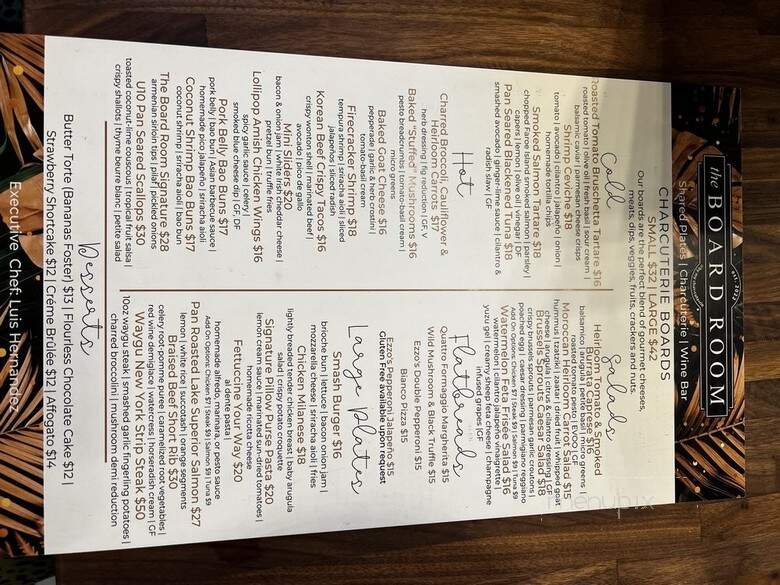 the BOARD ROOM
EST. 2023
Shared Plates | Charcuterie | Wine Bar
CHARCUTERIE BOARDS
SMALL $32 | LARGE $42
Our boards are the perfect blend of gourmet cheeses,
meats, dips, veggies, fruits, crackers and nuts.
Cold
Roasted Tomato Bruschetta Tartare $16
roasted tomato | olive oil | fresh basil | sour cream |
balsamic caviar | parmesan cheese crisps
Shrimp Ceviche $18
tomato | avocado | cilantro | jalapeño | onion |
homemade tortilla chips
Smoked Salmon Tartare $18
chopped Faroe Island smoked salmon | parsley |
capers | lemon | olive oil | vinegar | GF, DF
Pan Seared Blackened Tuna $18
smashed avocado | ginger-lime sauce | cilantro &
radish slaw | GF
Hot
Charred Broccoli, Cauliflower &
Heirloom Carrots $17
herb dressing | fig reduction | GF, V
Baked "Stuffed" Mushrooms $16
pesto breadcrumbs | tomato-basil cream |
micro greens
Baked Goat Cheese $16
pepperade | garlic & herb crostini |
tomato-basil cream
Firecracker Shrimp $18
tempura shrimp | sriracha aioli | sliced
jalapeños | sliced radish
Korean Beef Crispy Tacos $16
crispy wonton shell | marinated beef |
avocado | pico de gallo
Mini Sliders $20
bacon & onion jam | white Irish cheddar cheese |
pretzel bun | truffle fries
Lollipop Amish Chicken Wings $16
spicy garlic sauce | celery |
smoked blue cheese dip | GF, DF
Pork Belly Bao Buns $17
pork belly | bao bun | Asian barbecue sauce |
homemade pico jalapeño | sriracha aioli
Coconut Shrimp Bao Buns $17
coconut shrimp | sriracha aioli | bao bun
The Board Room Signature $28
armenian sirloin tips | pilaf | pickled onions
U10 Pan Seared Scallops $30
toasted coconut-lime couscous | tropical fruit salsa |
crispy shallots | thyme beurre blanc | petite salad
Salads
Heirloom Tomato & Smoked
Burrata Caprese $16
balsamico | arugula | petite basil | micro greens |
roasted tomato pesto | EVO | GF
Moroccan Heirloom Carrot Salad $15
hummus | tzatziki | zaatar | dried fruit | whipped goat
cheese | arugula | citrus & cilantro dressing | GF
Brussels Sprouts Caesar Salad $18
crispy brussels sprouts | parmesan garlic croutons |
poached egg | caesar dressing | parmigiano reggiano
Add On Options: Chicken $7 | Steak $9 | Salmon $9 | Tuna $9
Watermelon Feta Frisée Salad $16
watermelon | cilantro jalapeño vinaigrette |
yuzu gel | creamy sheep feta cheese | champagne
infused grapes | GF
Flatbreads
Quattro Formaggio Margherita $15
Wild Mushroom & Black Truffle $15
Ezzo's Double Pepperoni $15
Bianco Pizza $15
Ezzo's Pepperoni Jalapeño $15
Gluten free available upon request
Large Plates
Smash Burger $16
brioche bun | lettuce | bacon onion jam |
mozzarella cheese | sriracha aioli | fries
Chicken Milanese $18
lightly breaded tender chicken breast | baby arugula
salad | crispy potato croquette
Signature Pillowy Purse Pasta $20
lemon cream sauce | marinated sun-dried tomatoes |
homemade ricotta cheese
Fettuccine Your Way $20
al dente pasta |
homemade alfredo, marinara, or pesto sauce
Add On Options: Chicken $7 | Steak $9 | Salmon $9 | Tuna $9
Pan Roasted Lake Superior Salmon $27
lemon-herb white rice | succulent orange segments
Braised Beef Short Rib $30
celery root-pomme puree | caramelized root vegetables |
red wine demiglaze | watercress | horseradish cream | GF
Waygu New York Strip Steak $50
10oz waygu steak | smashed garlic fingerling potatoes |
charred broccolini | mushroom shallot demi reduction
Desserts
Butter Torte (Bananas Foster) $13 | Flourless Chocolate Cake $12 |
Strawberry Shortcake $12 | Créme Brûlée $12 | Affogato $14
Executive Chef: Luis Hernandez
menubix